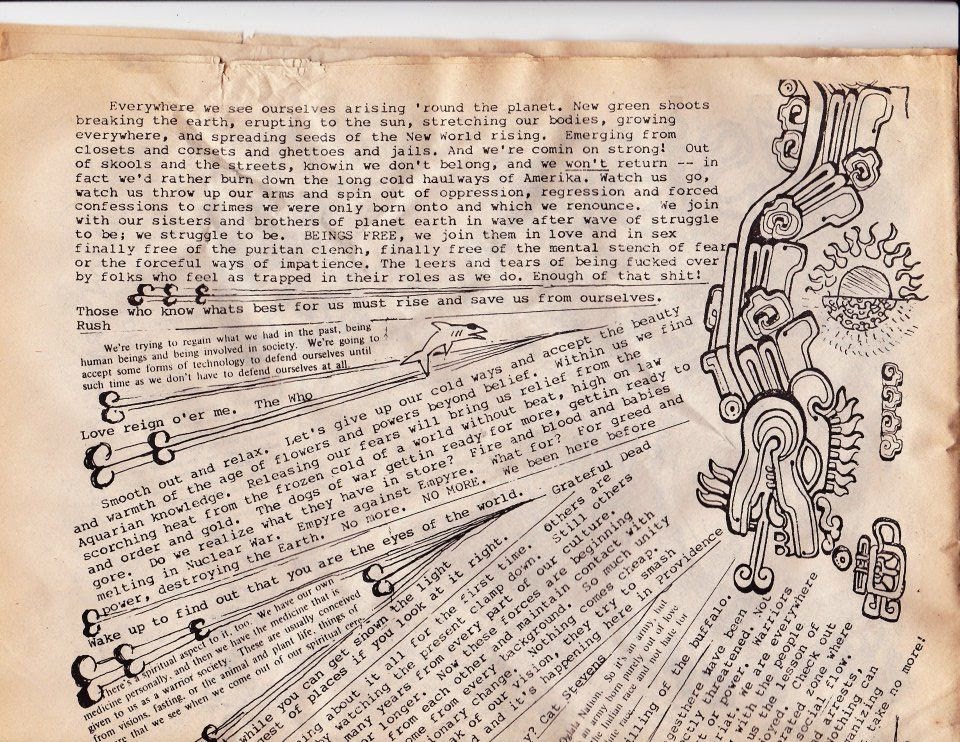 Everywhere we see ourselves arising 'round the planet. New green shoots
breaking the earth, erupting to the sun, stretching our bodies, growing
everywhere, and spreading seeds of the New World rising. Emerging from
closets and corsets and ghettoes and jails. And we're comin on strong! Out
of skools and the streets, knowin we don't belong, and we won't return -- in
fact we'd rather burn down the long cold haulways of Amerika. Watch us go,
watch us throw up our arms and spin out of oppression, regression and forced
confessions to crimes we were only born onto and which we renounce. We join
with our sisters and brothers of planet earth in wave after wave of struggle
to be; we struggle to be. BEINGS FREE, we join them in love and in sex
finally free of the puritan clench, finally free of the mental stench of fear
or the forceful ways of impatience. The leers and tears of being fucked over
by folks who feel as trapped in their roles as we do. Enough of that shit!
Those who know whats best for us must rise and save us from ourselves.
Rush
We're trying to regain what we had in the past, being
human beings and being involved in society. We're going to
accept some forms of technology to defend ourselves until
such time as we don't have to defend ourselves at all.
Love reign o'er me. The Who
Smooth out and relax. Let's give up our cold ways and accept the beauty
and warmth of the age of flowers and powers beyond belief. Within us we find
Aquarian knowledge. Releasing our fears will bring us relief from the
scorching heat from the frozen cold of a world without beat, high on law
and order and gold. The dogs of war gettin ready for more, gettin ready to
gore. Do we realize what they have in store? Fire and blood and babies
melting in Nuclear War. Empyre against Empyre. What for? For greed and
power, destroying the Earth. No more. NO MORE. We been here before
Wake up to find out that you are the eyes of the world. Grateful Dead
There's a spiritual aspect to it, too. We have our own
medicine personally, and then we have the medicine that is
given to us as a warrior society. These are usually conceived
from visions, fasting, or the animal and plant life, things of
that we see when we come out of our spiritual
while you can get shown the light
gest of places if you look at it right.
ing about it all for the first time. Others are
by watching the present clamp down. Still others
many years from every part of our culture.
longer. Now these forces are beginning
om each other and maintain contact with
from every background. So much unity
onary change. Nothing comes cheap.
ak of our vision, they try to smash
and it's happening here in Providence
y? Cat Stevens
Nation. So it's an army, but
an army built purely out of love
Indian race and not hate for
race.
illing of the buffalo.
gesthere have been
ctly threatened. Not
t or power. Warriors
riat, we are everywhere
with the people
oyed. the lesson of
us Check out
rated zone where
social flow.
d arrests,
othings,
anizing can
take no more!